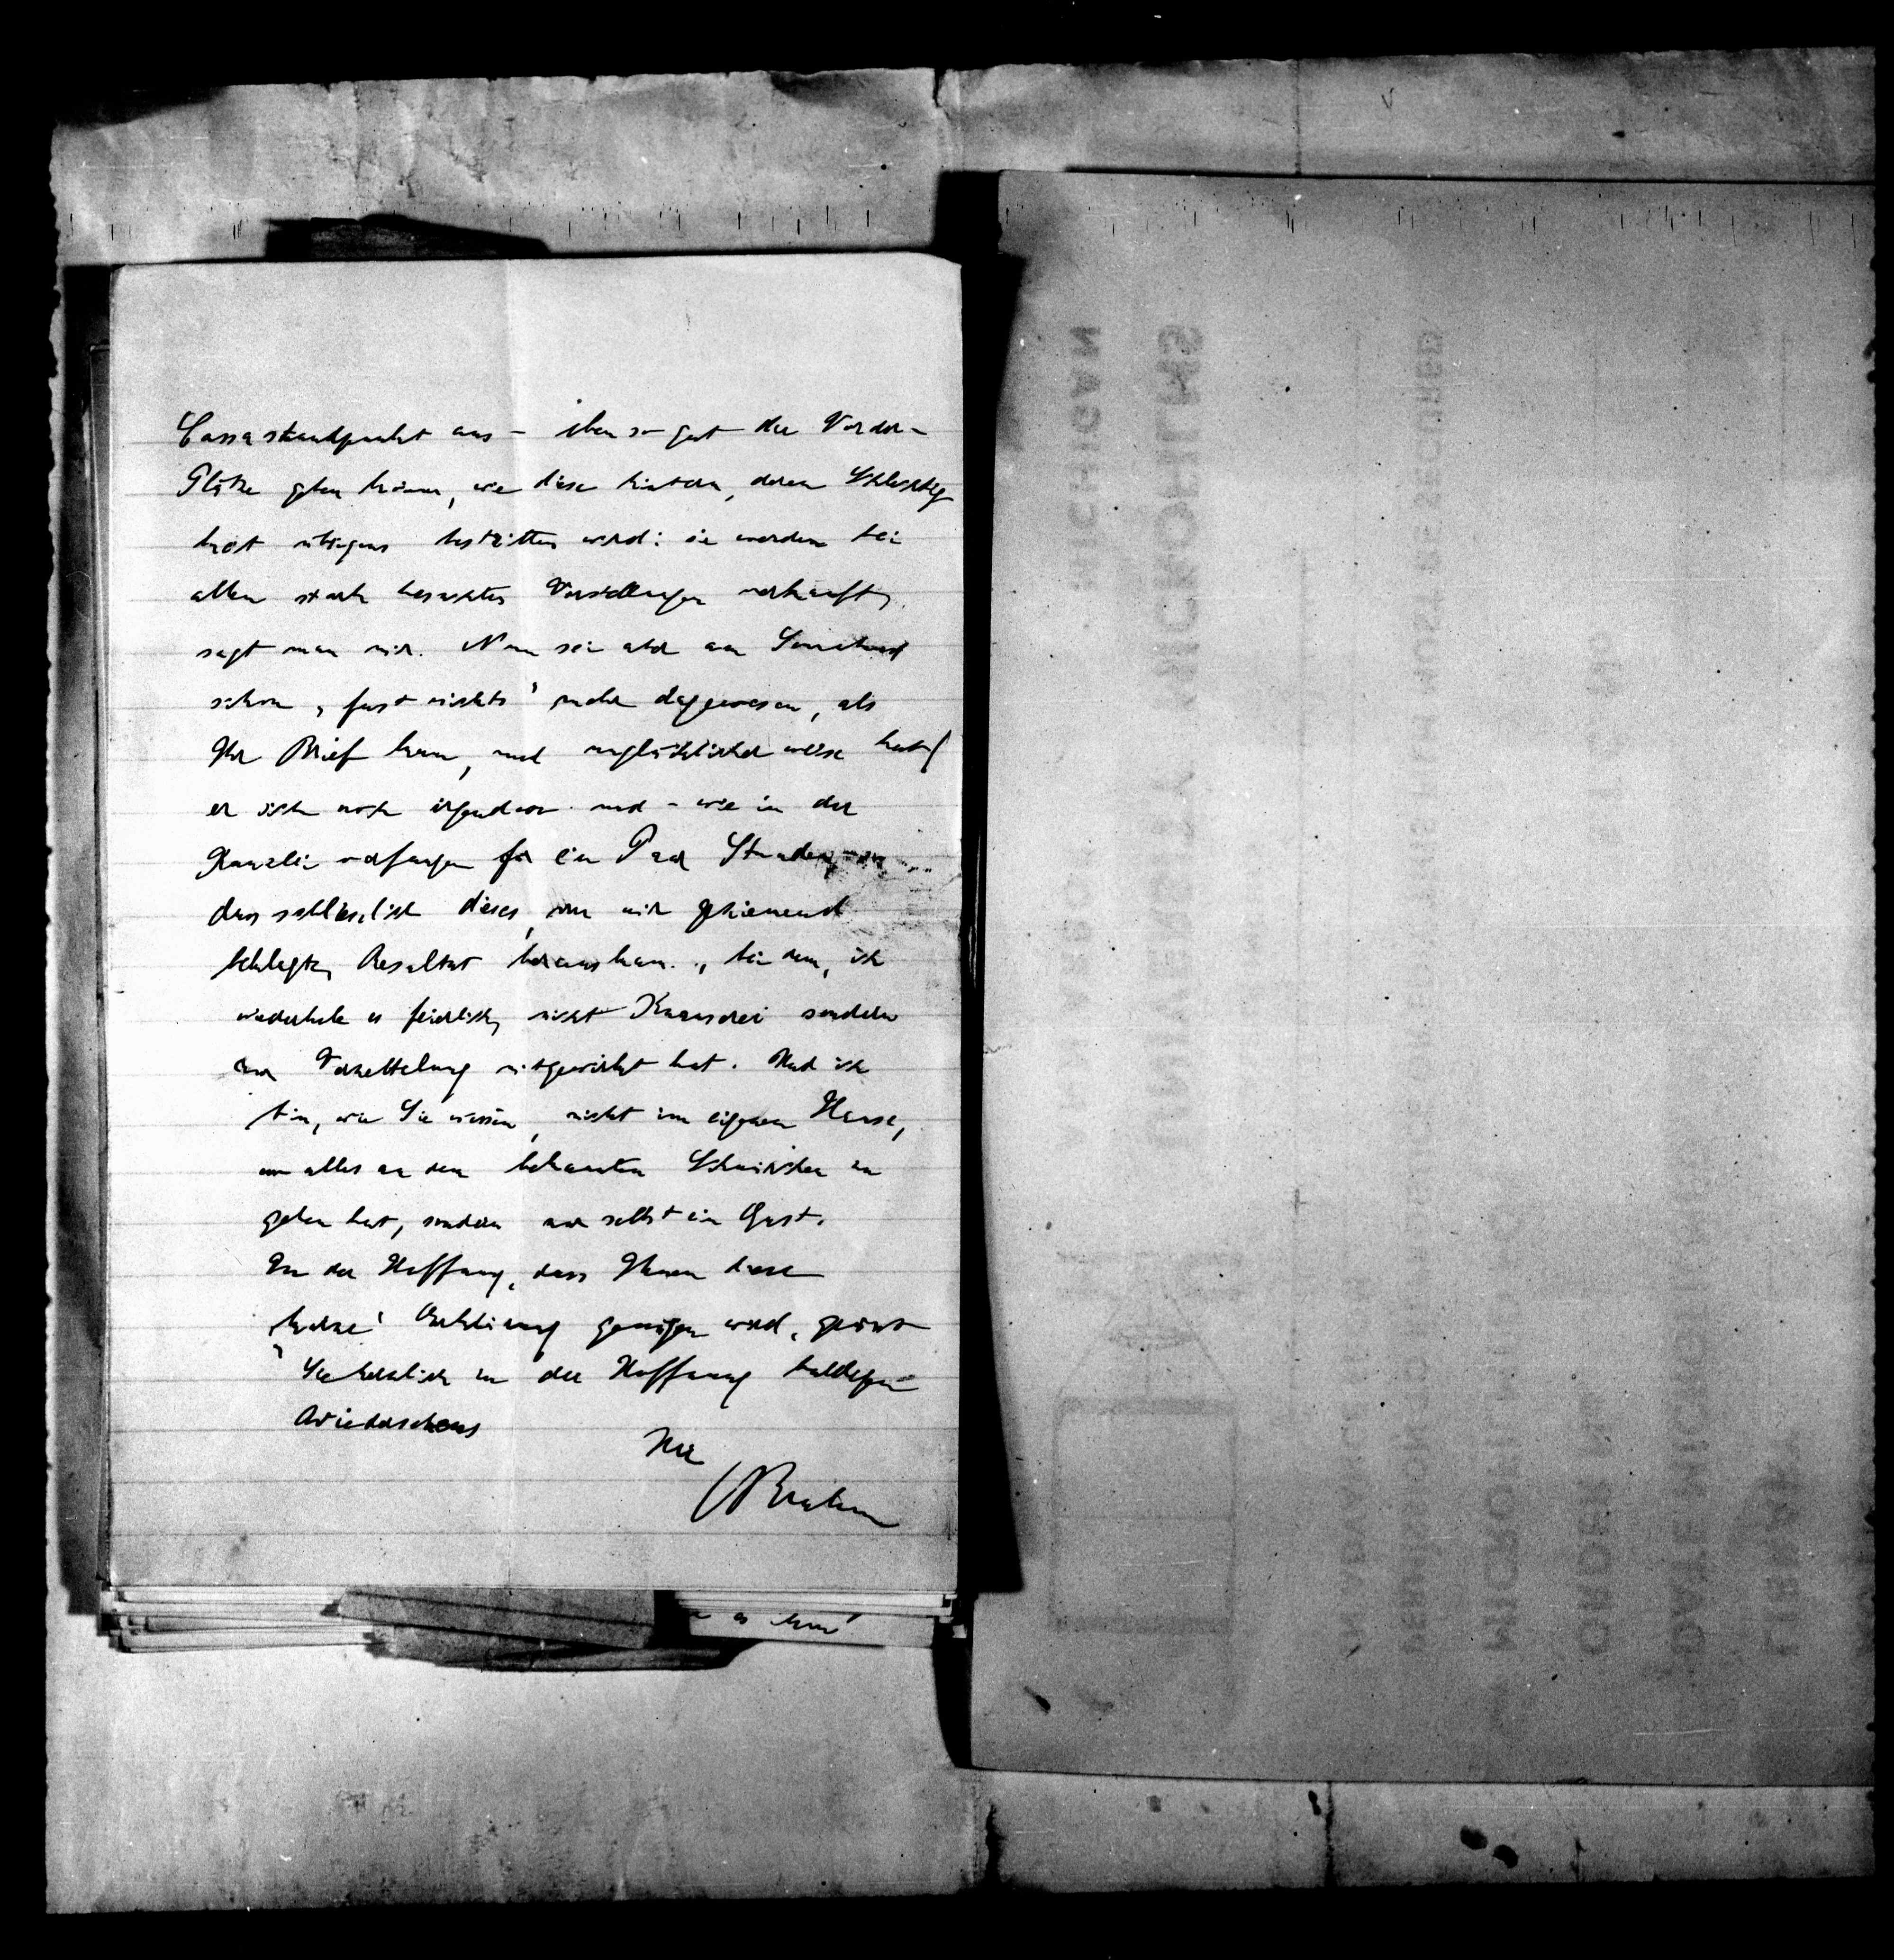 Cassastandpunkt aus – eben so gut die Vorder-
Plätze geben können, wie diese hintern, deren Schlechtig
keit übrigens bestritten wird: sie werden bei
allen stark besuchten Vorstellungen verkauft,
sagt man mir. Nun sei aber am Sonnabend
schon „fast nichts" mehr dagewesen, als
Ihr Brief kam, und unglücklicher weise hat
er sich noch irgendwo und – wie in der
Kanzlei verfangen für ein Paar Stunden
dass schliesslich dieses, von mir geziemend
beklagte, Resultat herauskam, bei dem, ich
wiederhole es feierlich, nicht Knauserei sondern
nur Verzettelung mitgewirkt hat. Und ich
bin, wie Sie wissen, nicht im eigenen Hause,
wo alles an dem bekannten Schnürchen zu
gehen hat, sondern nur selbst ein Gast.
In der Hoffnung, dass Ihnen diese
„kurze" Erklärung genügen wird, grüsst
Sie herzlich in der Hoffnung baldigen
Wiedersehens
Ihr
Brahm
es
MICHIGAN
UNIVERSITY MICROFILMS